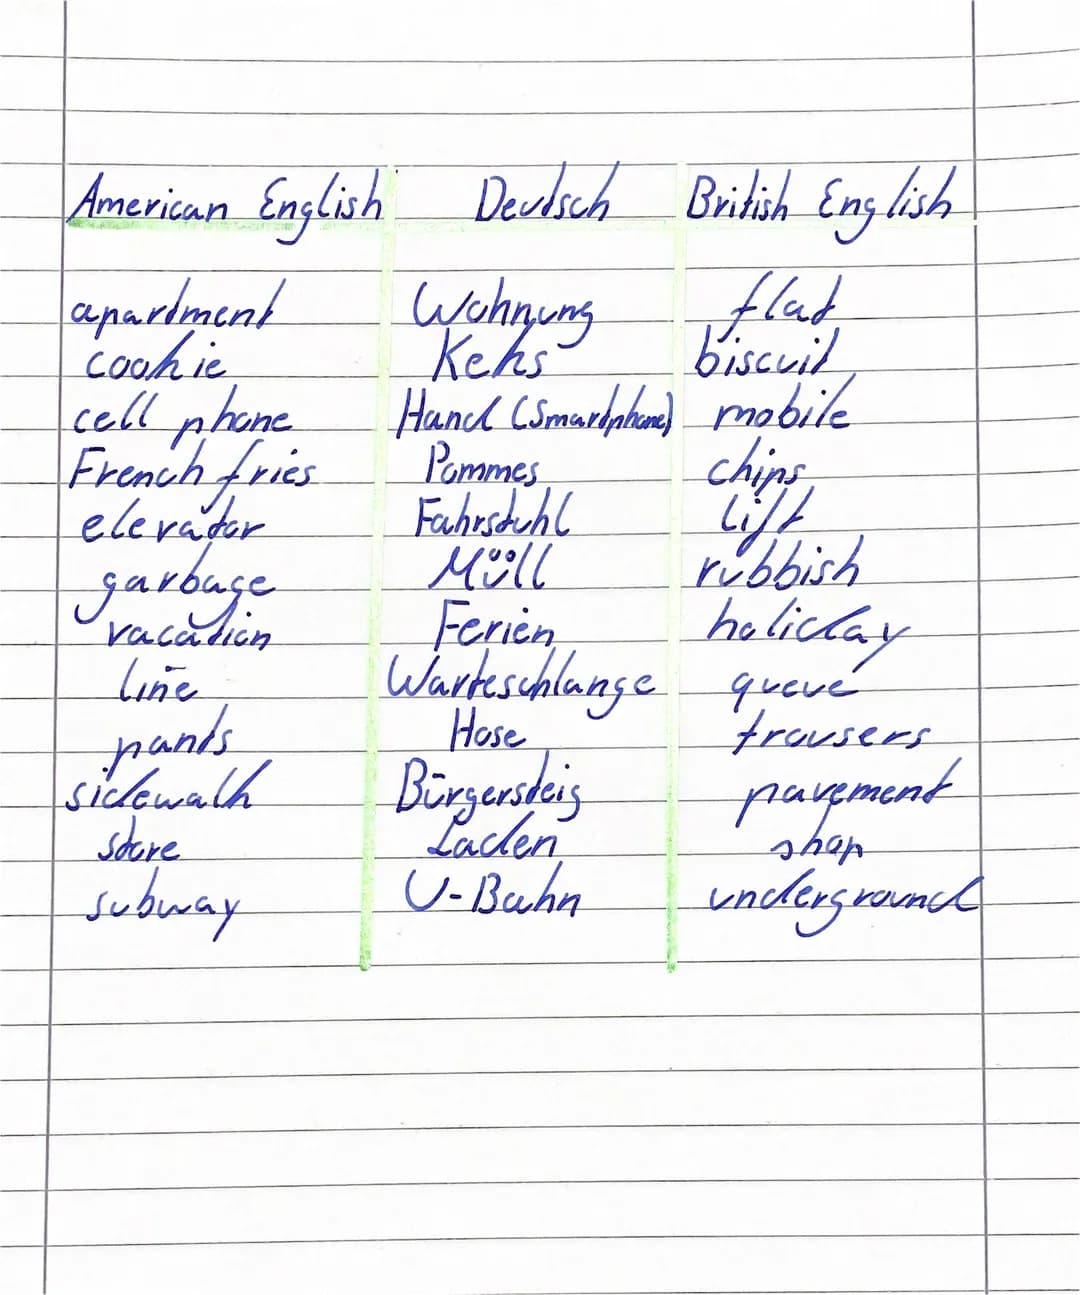 American English Deutsch British English
apartment Wohnung flat
cookie Keks biscuit
cell phone Hand (Smartphone) mobile
French fries Pommes chips
elevator Fahrstuhl lift
garbage Müll rubbish
vacation Ferien holiday
line Warteschlange queue
pants Hose trousers
sidewalk Bürgersteig pavement
store Laden shop
subway U-Bahn underground